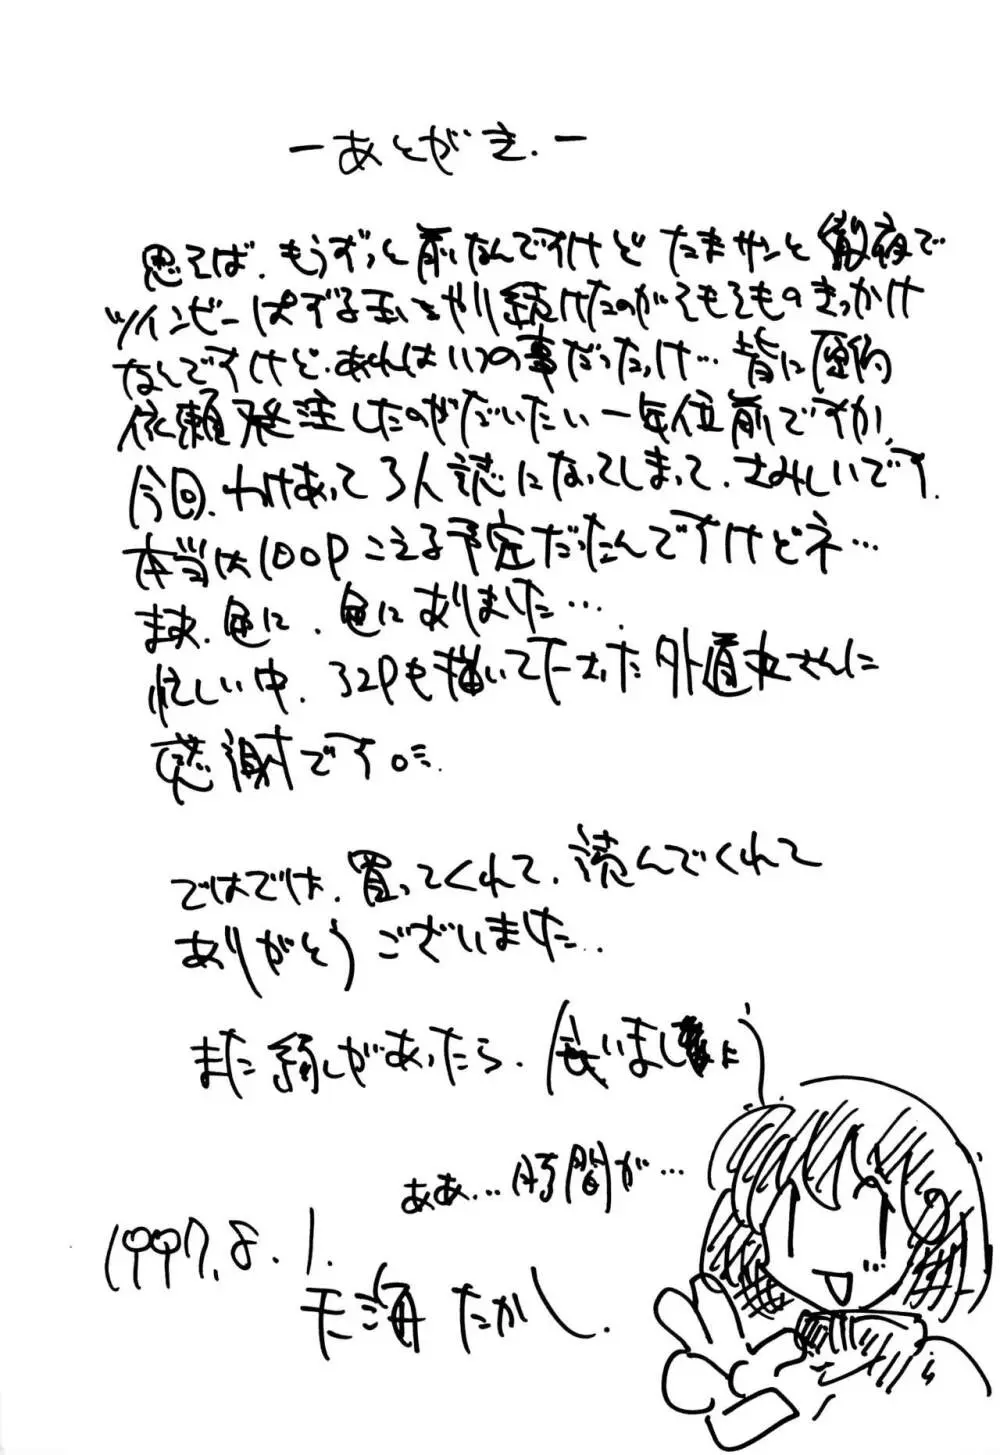 ーあとがき.ー
思えば、もうずっと前なんですけど たまサンと徹夜で
ツインビーぱずる玉をやり続けたのがそもそものきっかけ
なんですけど、あれはいつの事だったっけ… 皆に原稿
依頼発注したのがだいたい一年位前ですか、
今回、わけあって3人誌になってしまって、さみしいです。
本当は100Pこえる予定だったんですけどネ…
まあ、色々、色々ありました…
忙しい中、32Pも描いて下さった外道丸さんに
感謝です。
ではでは、買ってくれて、読んでくれて
ありがとうございました。
また縁があったら、会いましょう
ああ…時間が…
1997.8.1.
天海たかし.